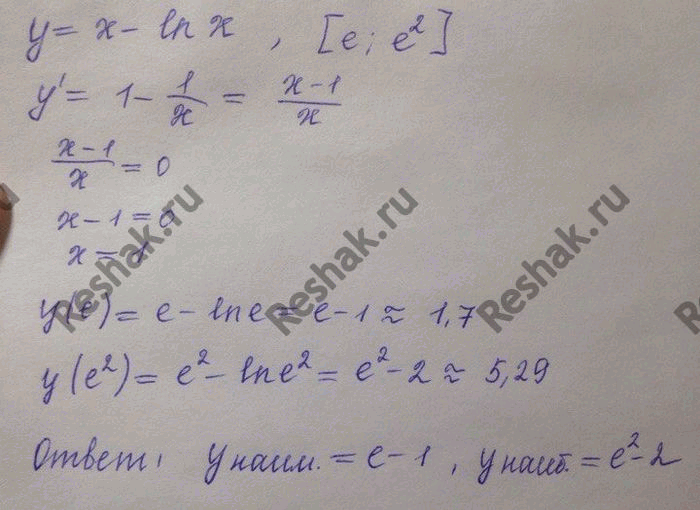 y = x - ln x , [e; e²]
y' = 1 - 1/x = (x-1)/x
(x-1)/x = 0
x - 1 = 0
x = 1
y(e) = e - ln e = e - 1 ≈ 1,7
y(e²) = e² - ln e² = e² - 2 ≈ 5,29
Ответ: y наим. = e - 1 , y наиб. = e² - 2
Reshak.ru
Reshak.ru
Reshak.ru
Reshak.ru